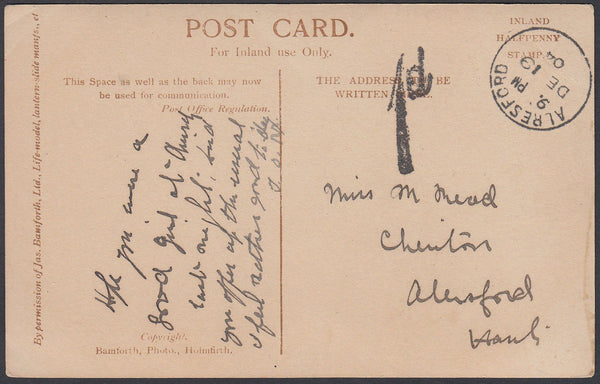 POST CARD.
For Inland use Only.
INLAND
HALFPENNY
STAMP.
This Space as well as the back may now
be used for communication.
Post Office Regulation.
THE ADDRESS BE
WRITTEN
ALRESFORD
9. PM
DE 19
04
1d
Hope you were a
good girl at Church
last night, did
you offer up the usual
I feel rather good to day
Miss M Mead
Cheriton
Alresford
Hants
Copyright.
Bamforth, Photo., Holmfirth.
By permission of Jas. Bamforth, Ltd., Life-model, lantern-slide manfs., &c